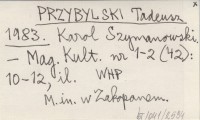 PRZYBYLSKI Tadeusz
1983. Karol Szymanowski.
— Mag. Kult. nr 1-2 (42):
10-12, il. WHP
M. in. w Zakopanem.